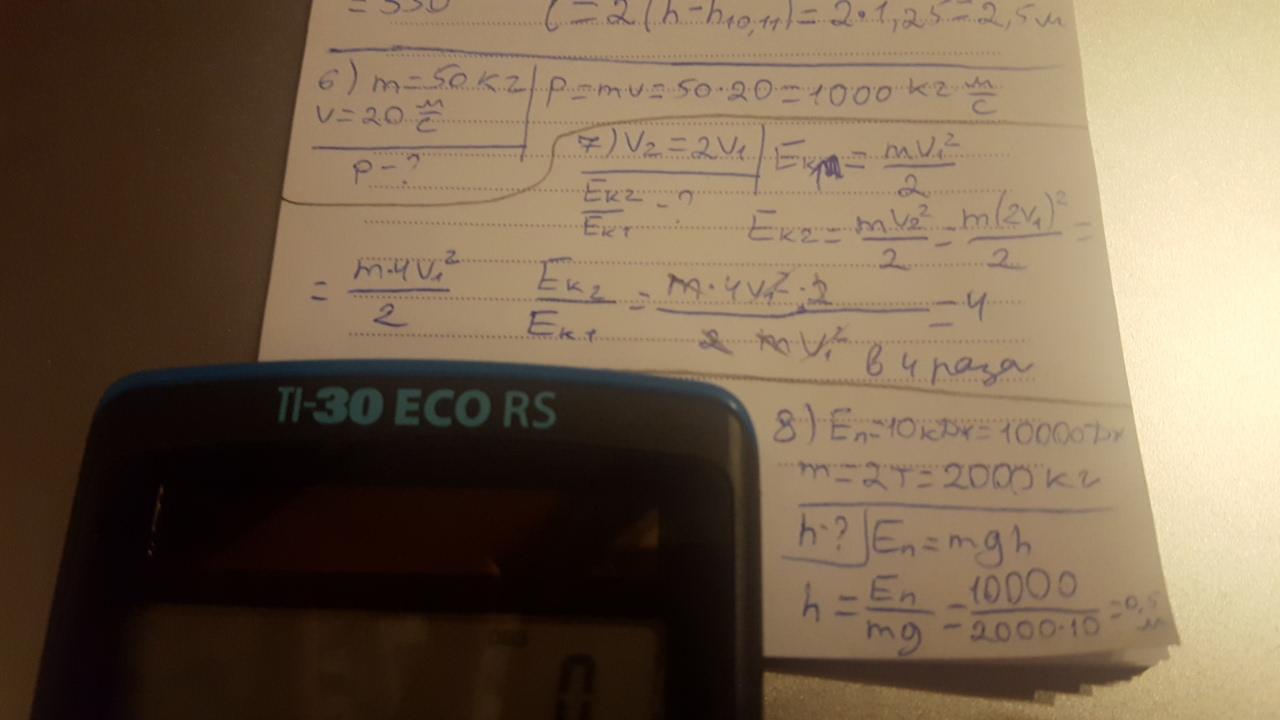 = 550 l = 2(h-h₁₀,₁₁) = 2·1,25 = 2,5 м
6) m = 50 кг p = mv = 50·20 = 1000 кг м/с
v = 20 м/с
p - ?
7) V₂ = 2V₁ Eк₁ = mV₁²/2
Eк₂/Eк₁ - ? Eк₂ = mV₂²/2 = m(2V₁)²/2 =
= m·4V₁²/2 Eк₂/Eк₁ = m·4V₁²·2/2mV₁² = 4
в 4 раза
TI-30 ECO RS
8) Eп = 10кДж = 10000Дж
m = 2т = 2000 кг
h-? Eп = mgh
h = Eп/mg = 10000/2000·10 = 0,5 м
DEG
0